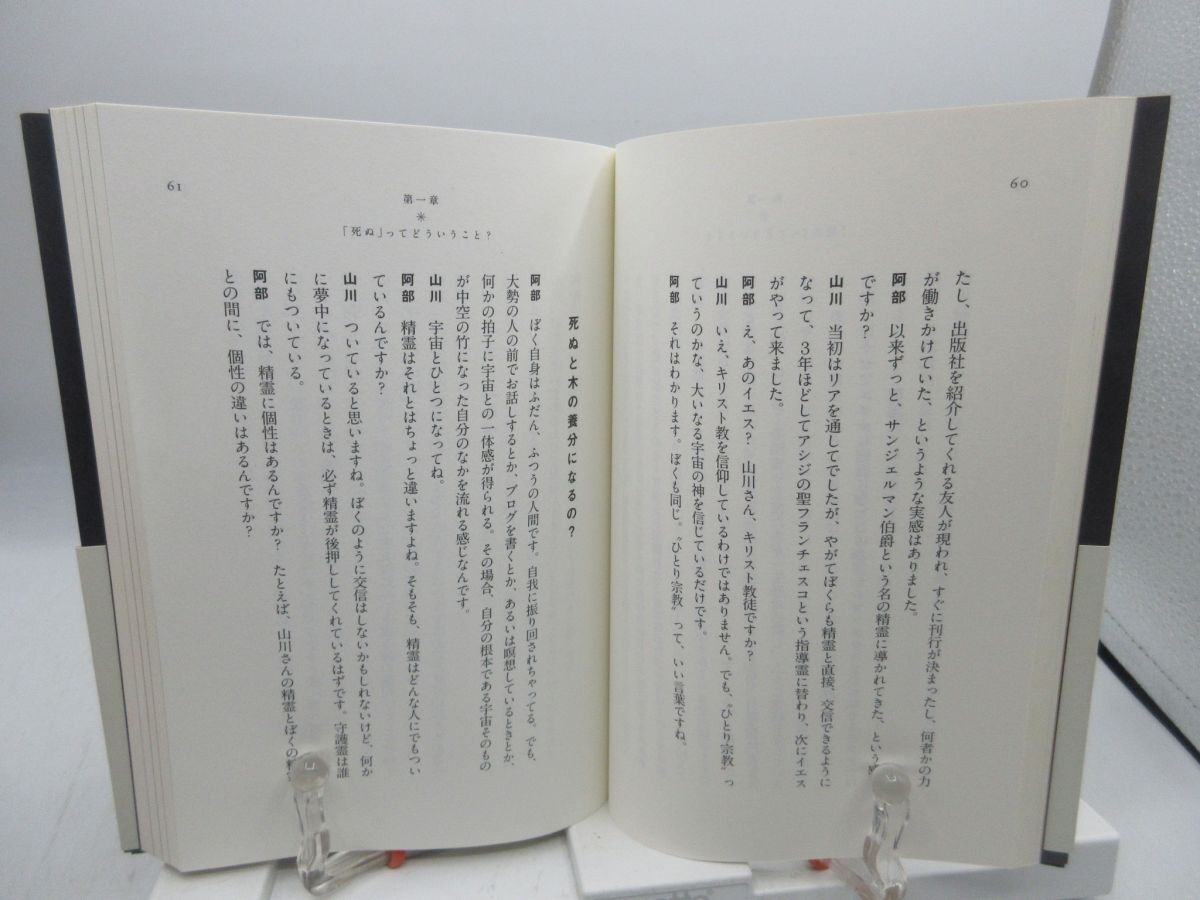 60
たし、出版社を紹介してくれる友人が現われ、すぐに刊行が決まったし、何者かの力
が働きかけていた、というような実感はありました。
阿部　以来ずっと、サンジェルマン伯爵という名の精霊に導かれてきた、という
ですか？
山川　当初はリアを通してでしたが、やがてぼくらも精霊と直接、交信できるように
なって、３年ほどしてアシジの聖フランチェスコという指導霊に替わり、次にイエス
がやって来ました。
阿部　え、あのイエス？　山川さん、キリスト教徒ですか？
山川　いえ、キリスト教を信仰しているわけではありません。でも、〝ひとり宗教〟っ
ていうのかな、大いなる宇宙の神を信じているだけです。
阿部　それはわかります。ぼくも同じ。〝ひとり宗教〟って、いい言葉ですね。
61
第一章
＊
「死ぬ」ってどういうこと？
死ぬと木の養分になるの？
阿部　ぼく自身はふだん、ふつうの人間です。自我に振り回されちゃってる。でも、
大勢の人の前でお話しするとか、ブログを書くとか、あるいは瞑想しているときとか、
何かの拍子に宇宙との一体感が得られる。その場合、自分の根本である宇宙そのもの
が中空の竹になった自分のなかを流れる感じなんです。
山川　宇宙とひとつになってね。
阿部　精霊はそれとはちょっと違いますよね。そもそも、精霊はどんな人にでもつい
ているんですか？
山川　ついていると思いますね。ぼくのように交信はしないかもしれないけど、何か
に夢中になっているときは、必ず精霊が後押ししてくれているはずです。守護霊は誰
にもついている。
阿部　では、精霊に個性はあるんですか？　たとえば、山川さんの精霊とぼくの
との間に、個性の違いはあるんですか？